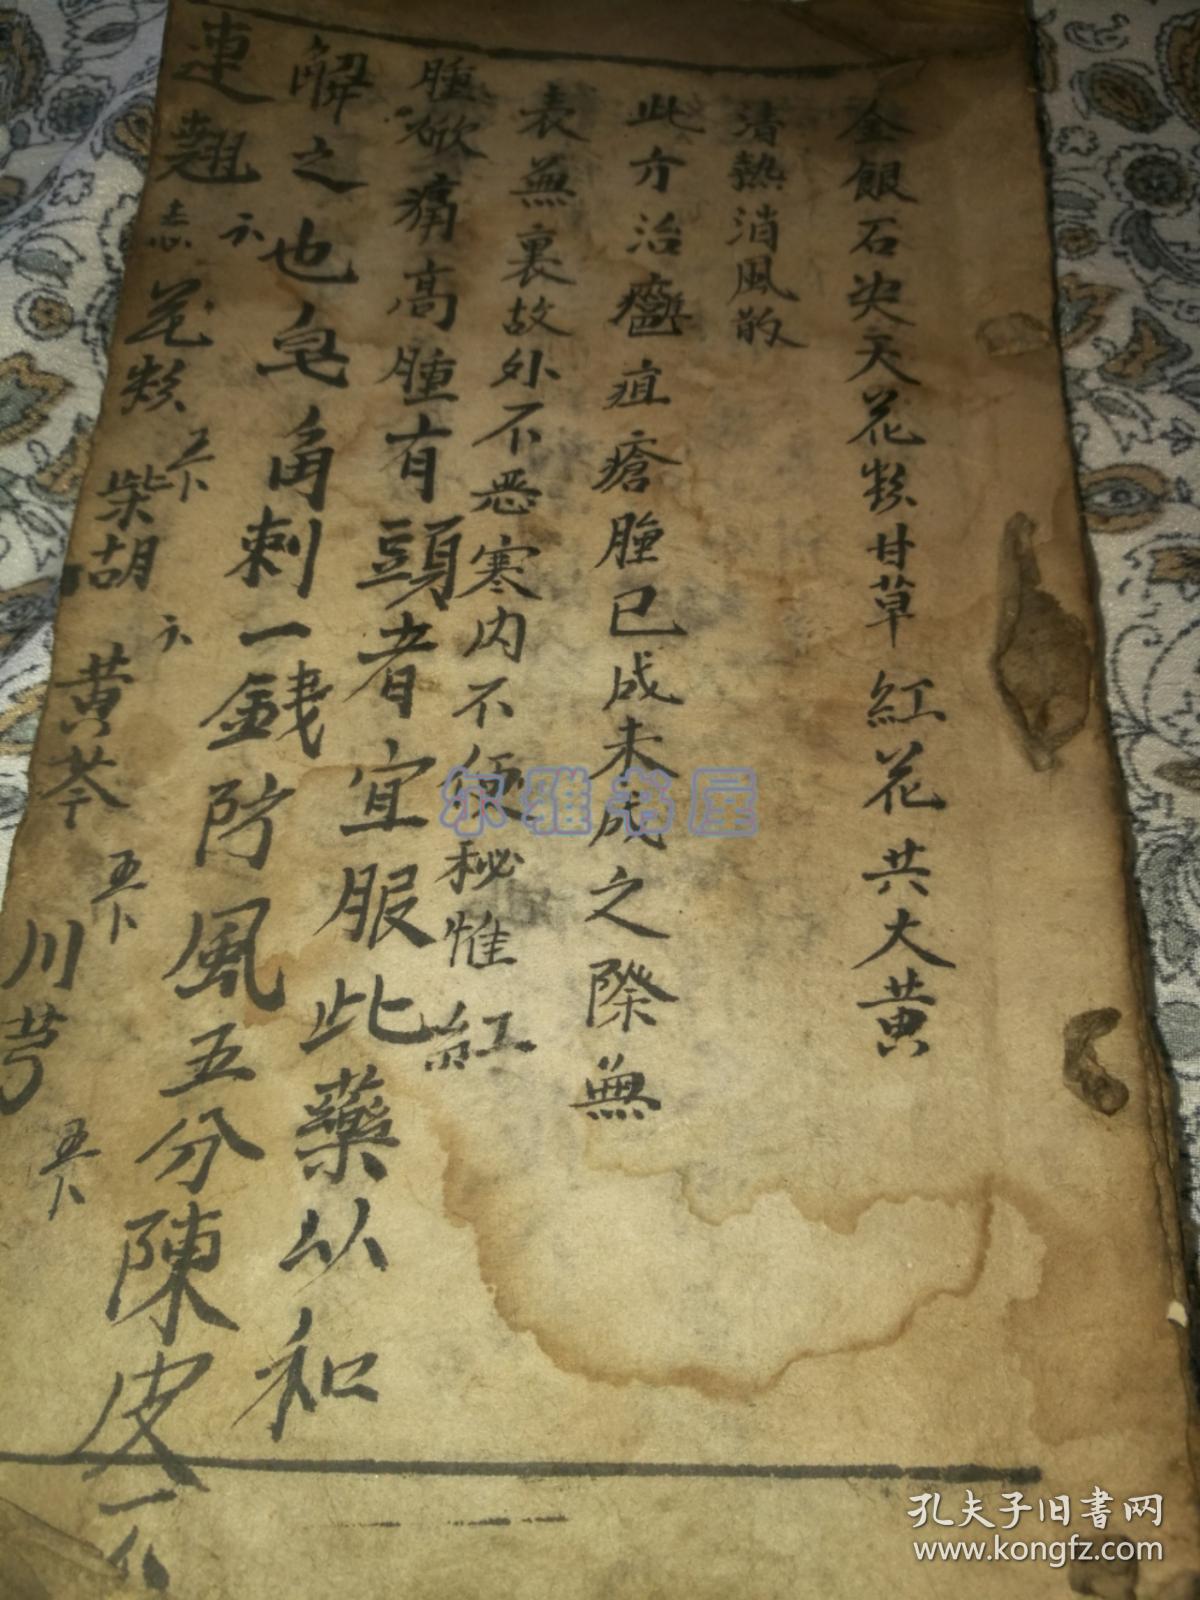 金銀石决天花粉甘草紅花共大黄
清熱消風散
此方治癰疽瘡腫已成未成之際無
表無裏故外不恶寒内不便秘惟紅
腫焮痛高腫有頭者宜服此藥以和
解之也皂角刺一錢防風五分陳皮一个
連翹 花粉 柴胡 黄芩 川芎
尔雅书屋
孔夫子旧书网
www.kongfz.com